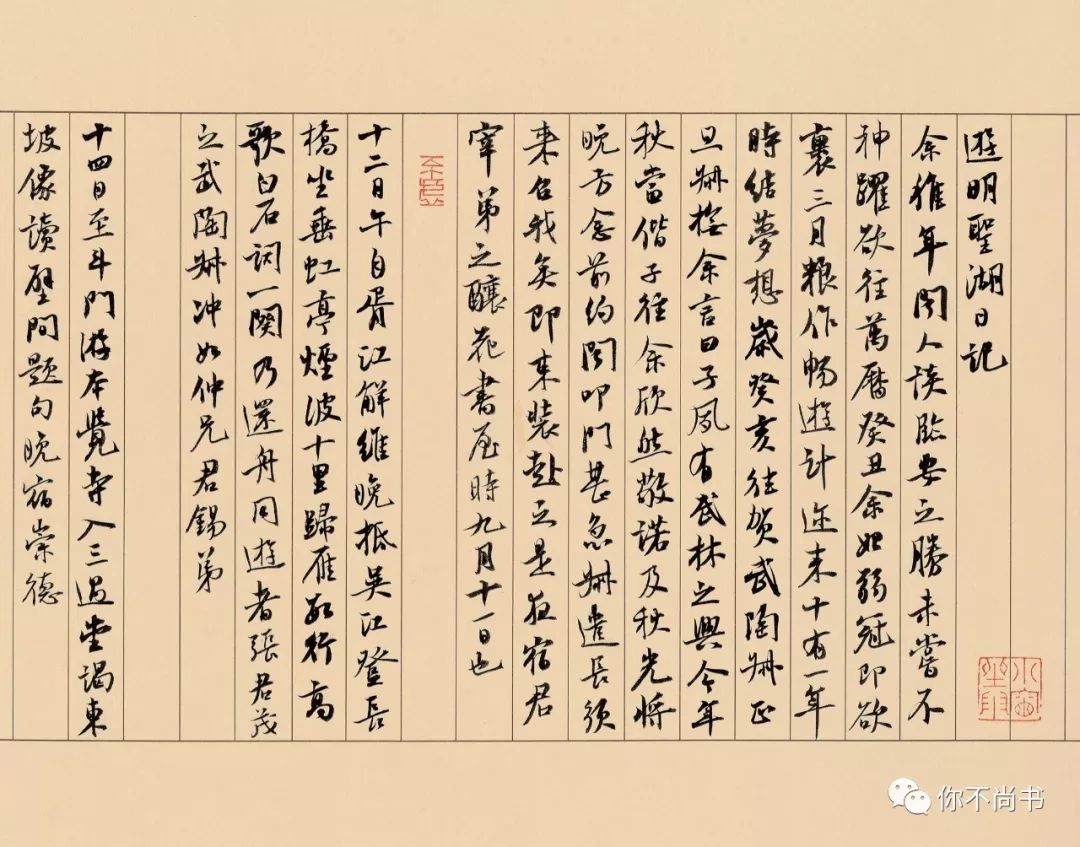 遊明聖湖日記
余稚年聞人談臨安之勝未嘗不
神躍欲往萬曆癸丑余始弱冠即欲
裹三月粮作暢遊計迩来十有一年
時結夢想歲癸亥往贺武陶叔正
旦叔握余言曰子夙有武林之興今年
秋當偕子往余欣然敬諾及秋光將
晚方念前約聞叩門甚急叔遣長须
来召我矣即束裝赴之是夜宿君
宰弟之釀花書屋時九月十一日也
十二日午自胥江解維晚抵吳江登長
橋坐垂虹亭煙波十里歸雁數行高
歌白石詞一闋乃還舟同遊者張君茂
之武陶叔冲如仲兄君錫弟
十四日至斗門游本覺寺入三過堂謁東
坡像讀壁間題句晚宿崇德
你不尚书